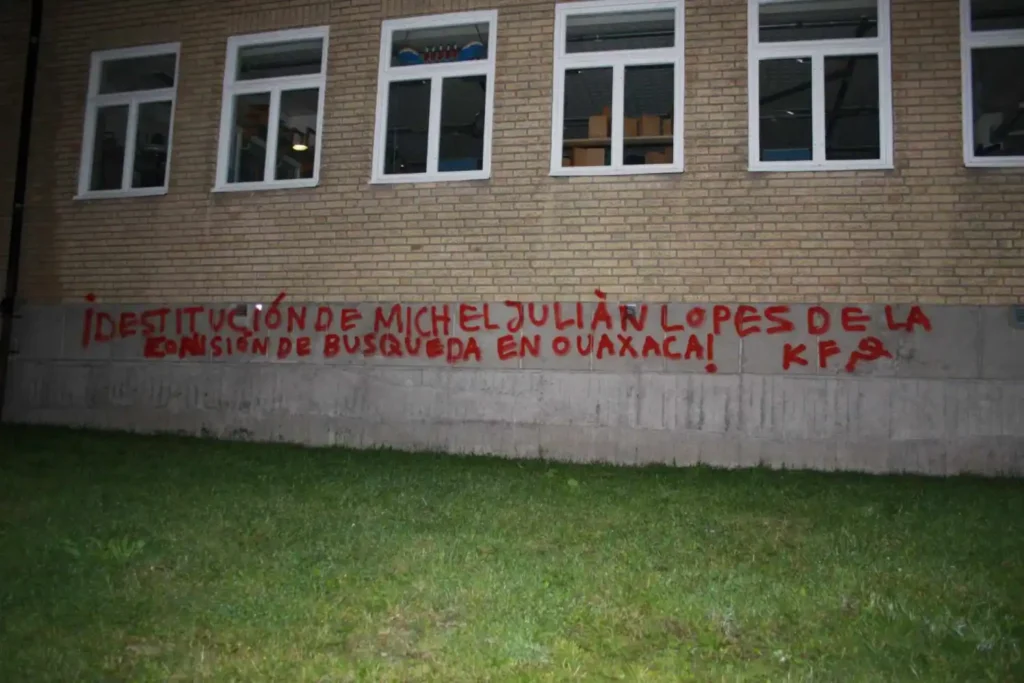 ¡DESTITUCIÓN DE MICHEL JULIÀN LOPES DE LA
COMISIÓN DE BUSQUEDA EN OUAXACA! KF☭